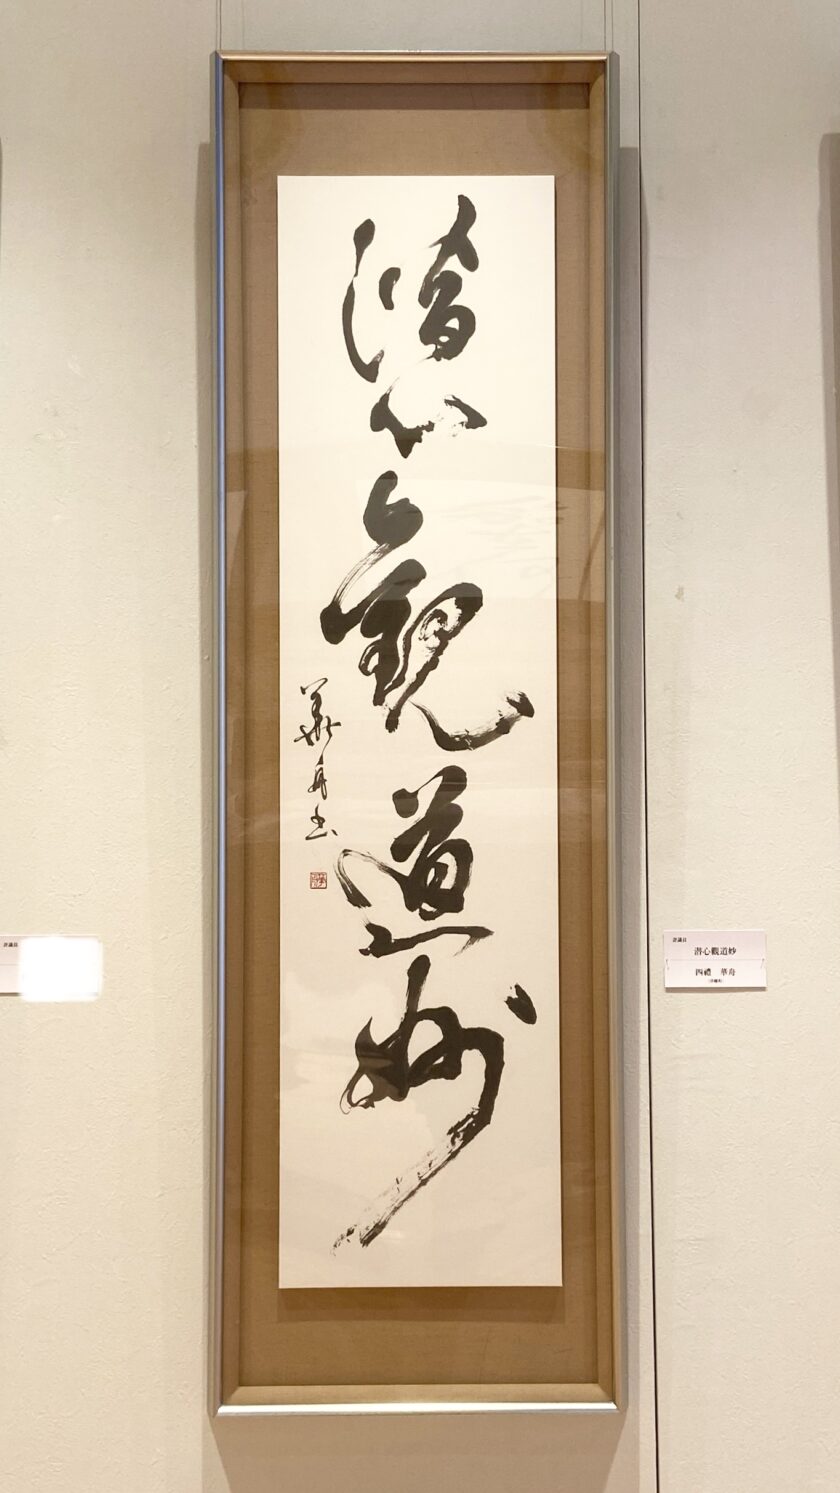 潜心觀道妙
華舟書
評議員
潜心觀道妙
四禮 華舟
評議員